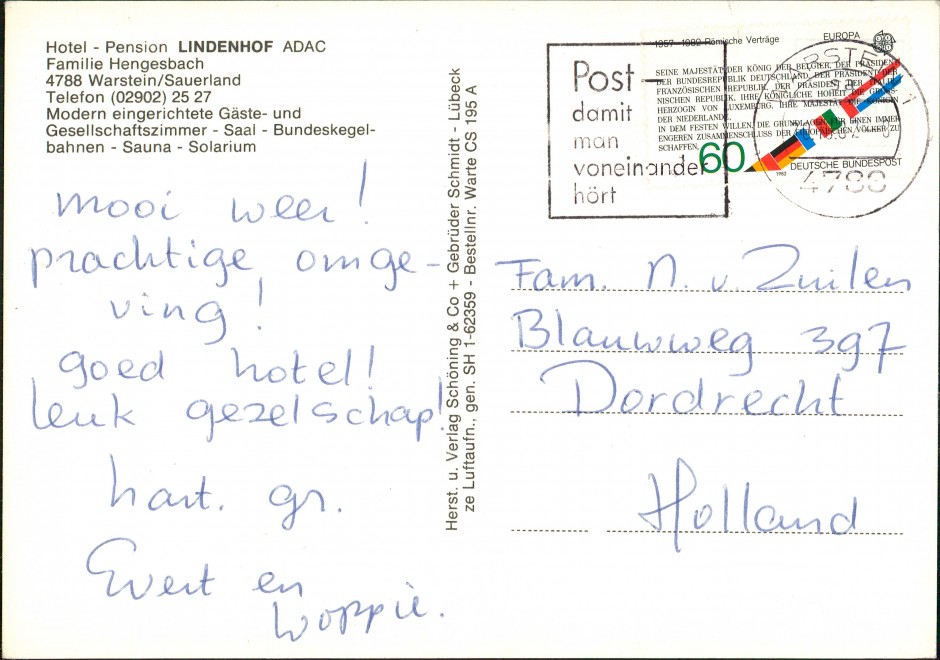 Hotel - Pension LINDENHOF ADAC
Familie Hengesbach
4788 Warstein/Sauerland
Telefon (02902) 25 27
Modern eingerichtete Gäste- und
Gesellschaftszimmer - Saal - Bundeskegel-
bahnen - Sauna - Solarium
mooi weer!
prachtige omge-
ving!
goed hotel!
leuk gezelschap!
hart. gr.
Evert en
Woppie.
Herst. u. Verlag Schöning & Co + Gebrüder Schmidt - Lübeck
ze Luftaufn., gen. SH 1-62359 - Bestellnr. Warte CS 195 A
Post -
damit
man
voneinander
hört
1957-1982 Römische Verträge
EUROPA
SEINE MAJESTÄT DER KÖNIG DER BELGIER, DER PRÄSIDENT
DER BUNDESREPUBLIK DEUTSCHLAND, DER PRÄSIDENT DER
FRANZÖSISCHEN REPUBLIK, DER PRÄSIDENT DER ITALIE-
NISCHEN REPUBLIK, IHRE KÖNIGLICHE HOHEIT DIE GROSS-
HERZOGIN VON LUXEMBURG, IHRE MAJESTÄT DIE KÖNIGIN
DER NIEDERLANDE,
IN DEM FESTEN WILLEN, DIE GRUNDLAGEN FÜR EINEN IMMER
ENGEREN ZUSAMMENSCHLUSS DER EUROPÄISCHEN VÖLKER ZU
SCHAFFEN,
60
1982
DEUTSCHE BUNDESPOST
4788
Fam. N. v. Zuilen
Blauwweg 397
Dordrecht
Holland